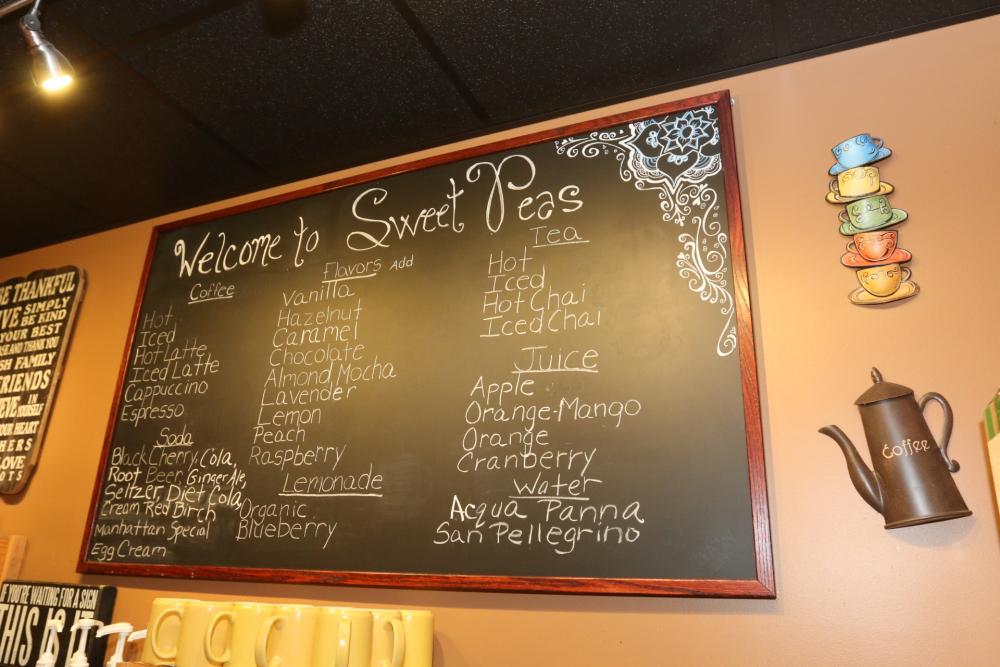 Welcome to Sweet Peas
Coffee
Hot
Iced
Hot Latte
Iced Latte
Cappuccino
Espresso
Soda
Black Cherry, Cola,
Root Beer, Ginger Ale,
Seltzer, Diet Cola,
Cream Red Birch
Manhattan Special
Egg Cream
Flavors Add
Vanilla
Hazelnut
Caramel
Chocolate
Almond Mocha
Lavender
Lemon
Peach
Raspberry
Lemonade
Organic
Blueberry
Tea
Hot
Iced
Hot Chai
Iced Chai
Juice
Apple
Orange-Mango
Orange
Cranberry
Water
Acqua Panna
San Pellegrino
BE THANKFUL
SIMPLY
BE KIND
YOUR BEST
AND THANK YOU
FAMILY
FRIENDS
IN
YOURSELF
YOUR HEART
LOVE
IF YOU'RE WAITING FOR A SIGN
THIS IS IT
Coffee